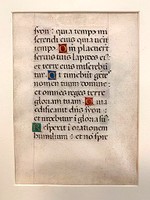 syon: quia tempo mi
serendi eius quia venit
tempus Qm placuert
servis tuis lapides ei⁹
et terre eius miserebũt
tur Et timebũt gẽte
nomen tuum domine
et omnes reges terre
gloriam tuam Qui
edificavit dñs syon:
et videbitur ĩ gloria sua
Respexit ĩ orationem
humiliũm: et nõ spre